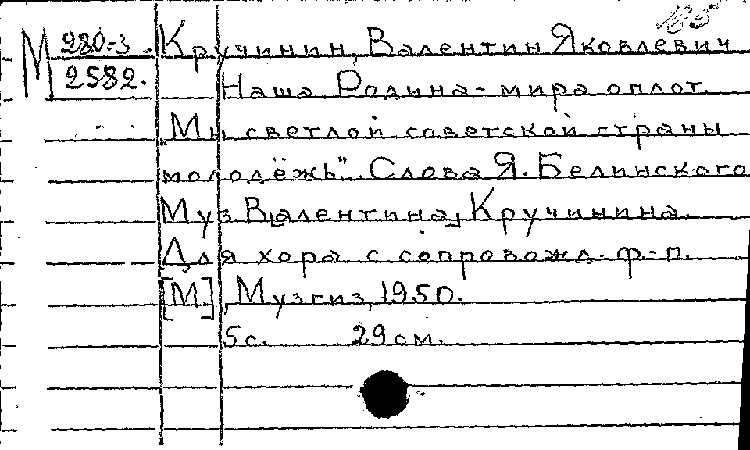 185
М 280-3
2582.
Кручинин, Валентин Яковлевич
Наша Родина - мира оплот.
„Мы светлой советской страны
молодёжь". Слова Я. Белинского
Муз. В[алентина] Кручинина.
Для хора с сопровожд. ф-п.
[М.], Музгиз, 1950.
5 с. 29 см.